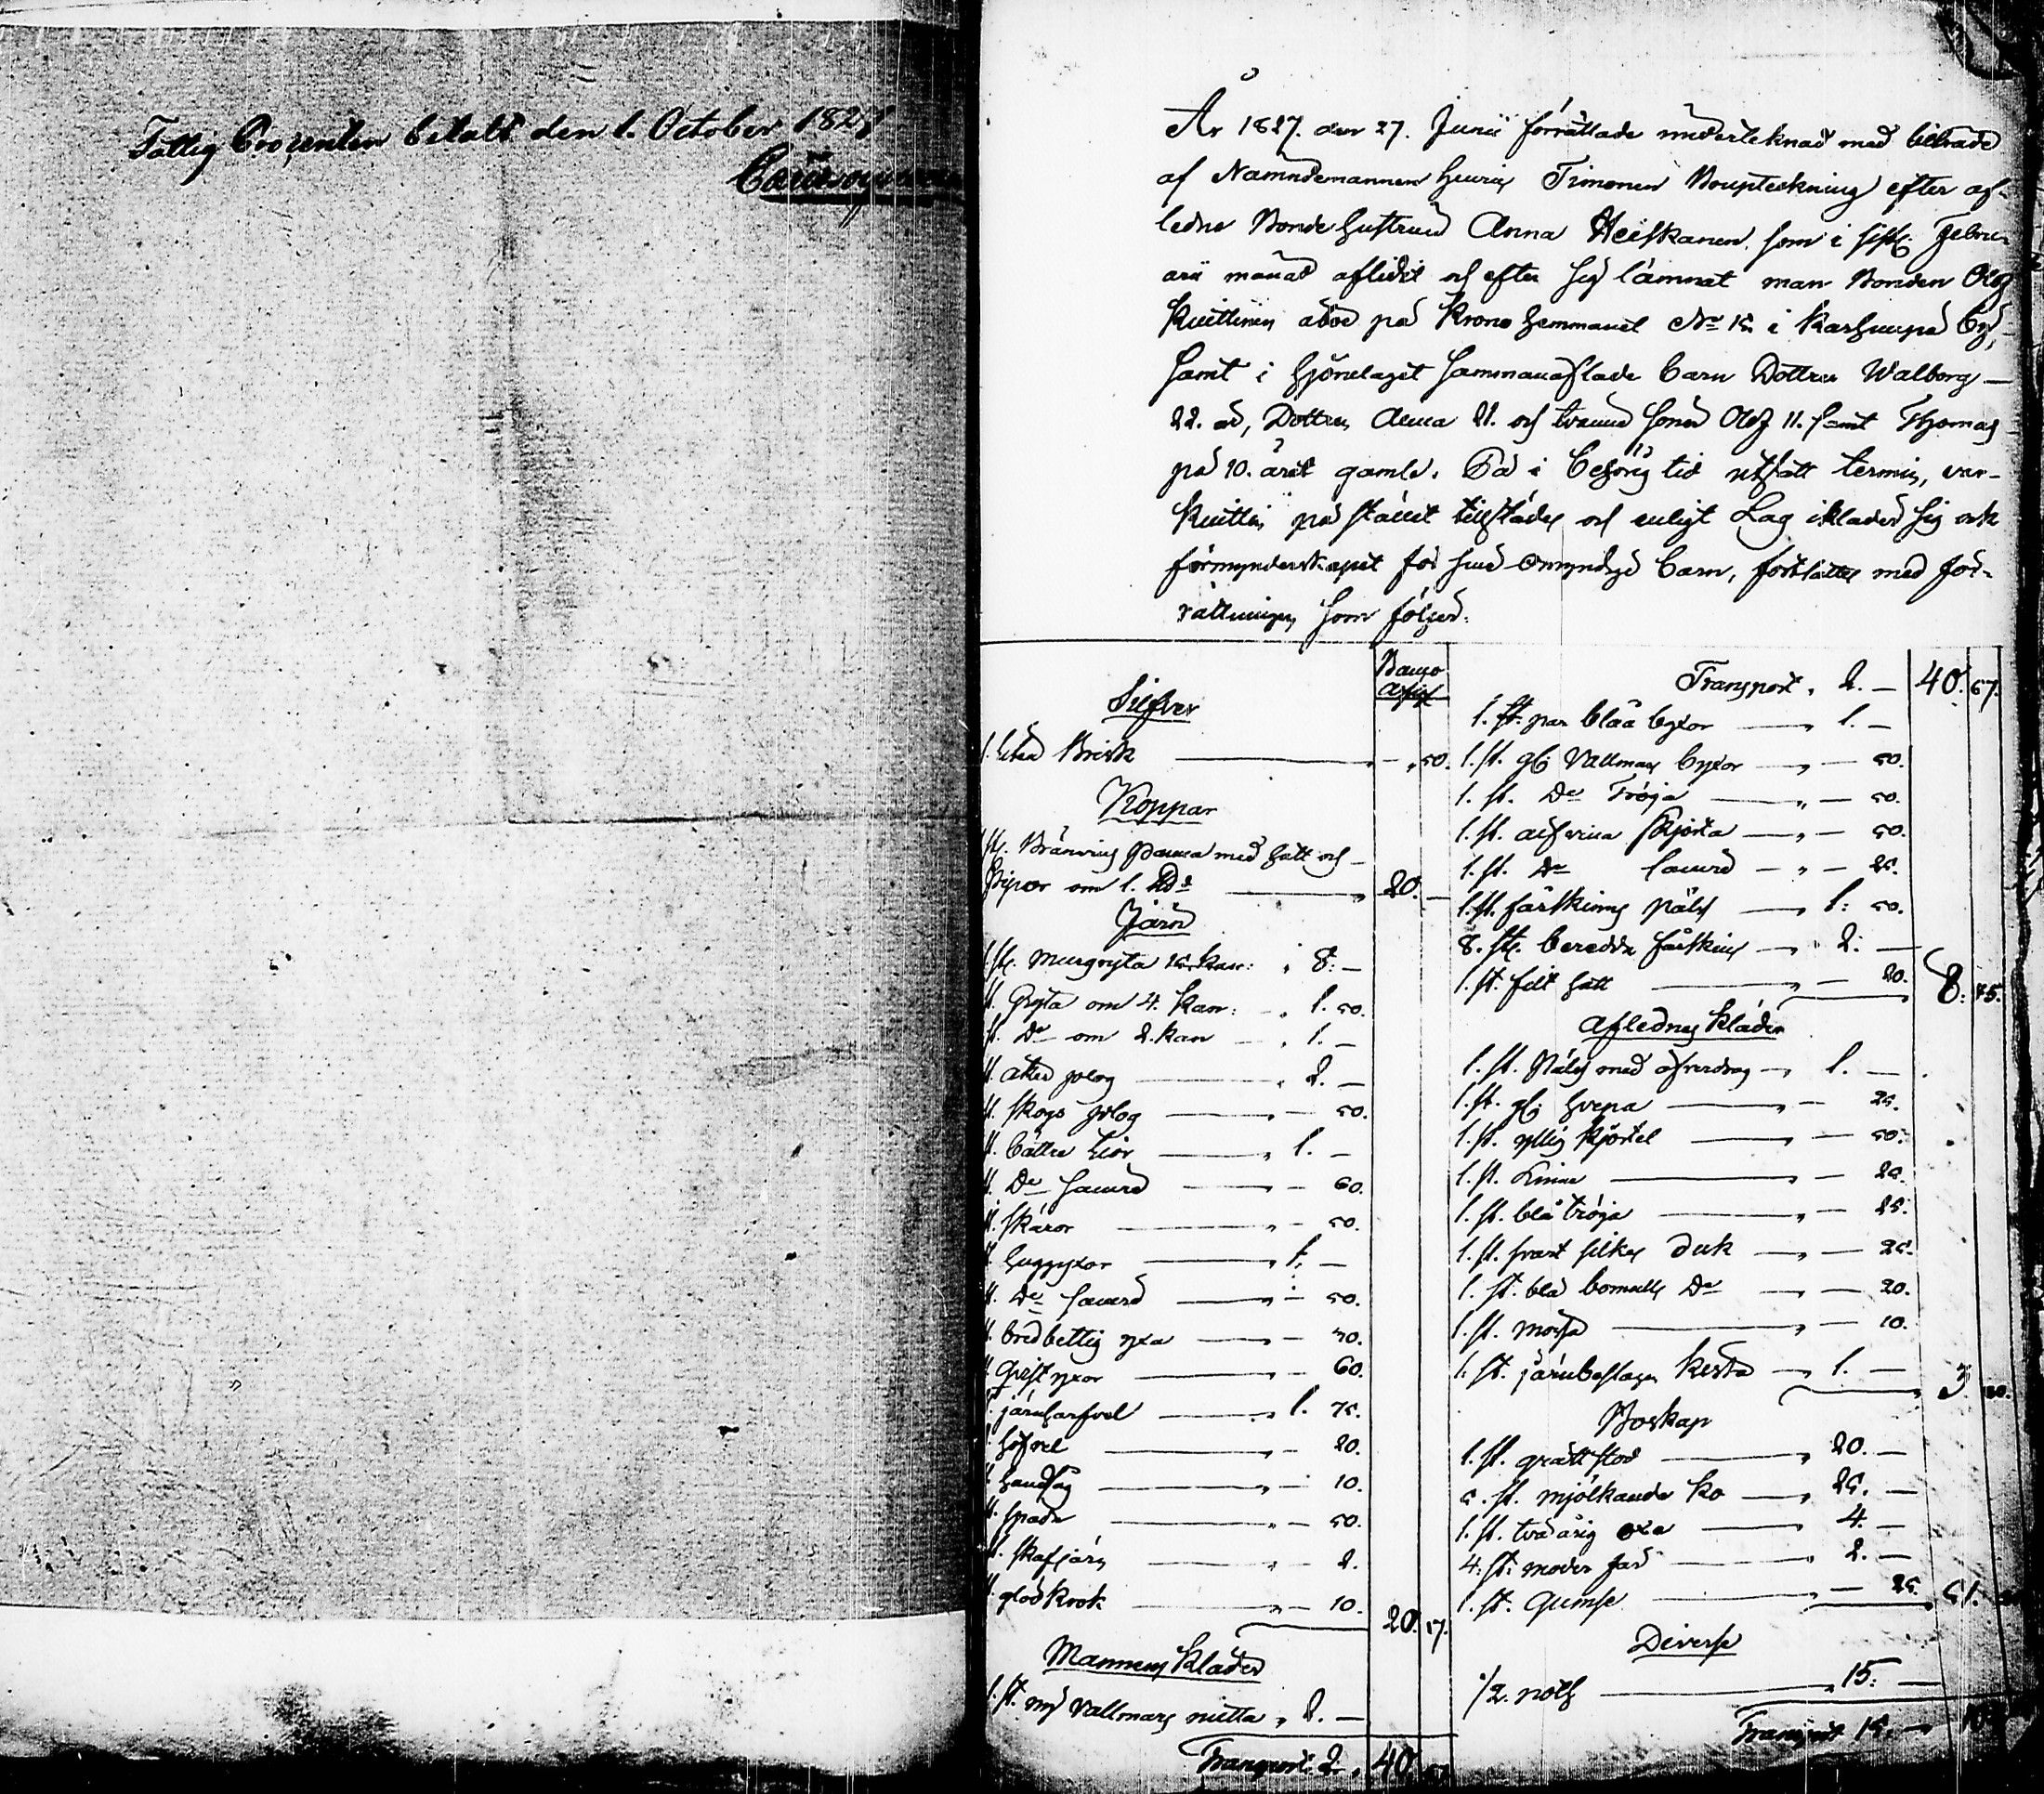 Fattig Procenten betalt den 1. October 1827
År 1827. den 27. Junii förrättade undertecknad med biträde
af Nämndemannen Henric Timonen Bouptekning efter af-
ledne Bonde Hustrun Anna Heiskanen, som i sistl. Febru-
arii månad aflidit och efter sig lämnat man Bonden Olof
Kuittinen åboe på Krono Hemmanet No 15 i Karhunpä By,
samt i Hjonelaget sammanaflade barn Dottren Walborg
22. år, Dottren Anna 21. och tvänne söner Olof 11. samt Thomas
på 10. året gamle. Då i behörig tid utsatt termin, var
Kuittin på stället tillstädes och enligt Lag iklädde sig ock
förmynderskapet för sine omyndige barn, fortsattes med för-
rättningen som följer:
Banco
Assig
Silfver
1. liten Brisk — 50.
Koppar
1 st. Bränvins Panna med hatt och
Pipor om 1. — 20. —
Järn
1 st. Murgryta 15 kan: 8. —
1 st. Gryta om 4. kan: 1. 50.
1 st. Do om 2. kan 1. —
st. åker plog 2. —
st. skogs plog — 50.
st. bättre Liar 1. —
st. Do sämre — 60.
st. skäror — 50.
st. huggyxor 1. —
st. Do sämre — 50.
st. bredbettig yxa — 40.
st. Gräftyxor — 60.
st. järnharfvel 1. 75.
höfvel — 20.
handsåg — 10.
st. spade — 50.
st. skafjärn — 2.
st. glödkrok — 10.
20. 17.
Mannens Kläder
1. st. ny vallmars mutta 2. —
Transport 2. 40. 67
Transport 2. — 40. 67.
1. st. par blåa byxor 1. —
1. st. gl: Vallmars byxor — 50.
1. st. Do Tröja — 50.
1. st. skjorta — 50.
1. st. Do sämre — 25.
1. st. fårskinns päls 1: 50.
8. st. beredde fårskinn 2. —
1. st. filt hatt — 20. 8: 45.
Aflednes Kläder
1. st. Päls med öfverdrag 1. —
1. st. gl: — 25.
1. st. yllig kjortel — 50.
1. st. — 25.
1. st. blå tröja — 25.
1. st. svart silkes duk — 25.
1. st. blå bomulls Do — 20.
1. st. mössa — 10.
1. st. järnbeslagen kista 1. — 3. 80.
Boskap
1. st. grått stod 20. —
5. st. mjölkande ko 25. —
1. st. två årig oxe 4. —
4. st: moder får 2. —
1. st. Gumse — 25. 51. 25
Diverse
1/2. noth 15. —
Transport 15. —